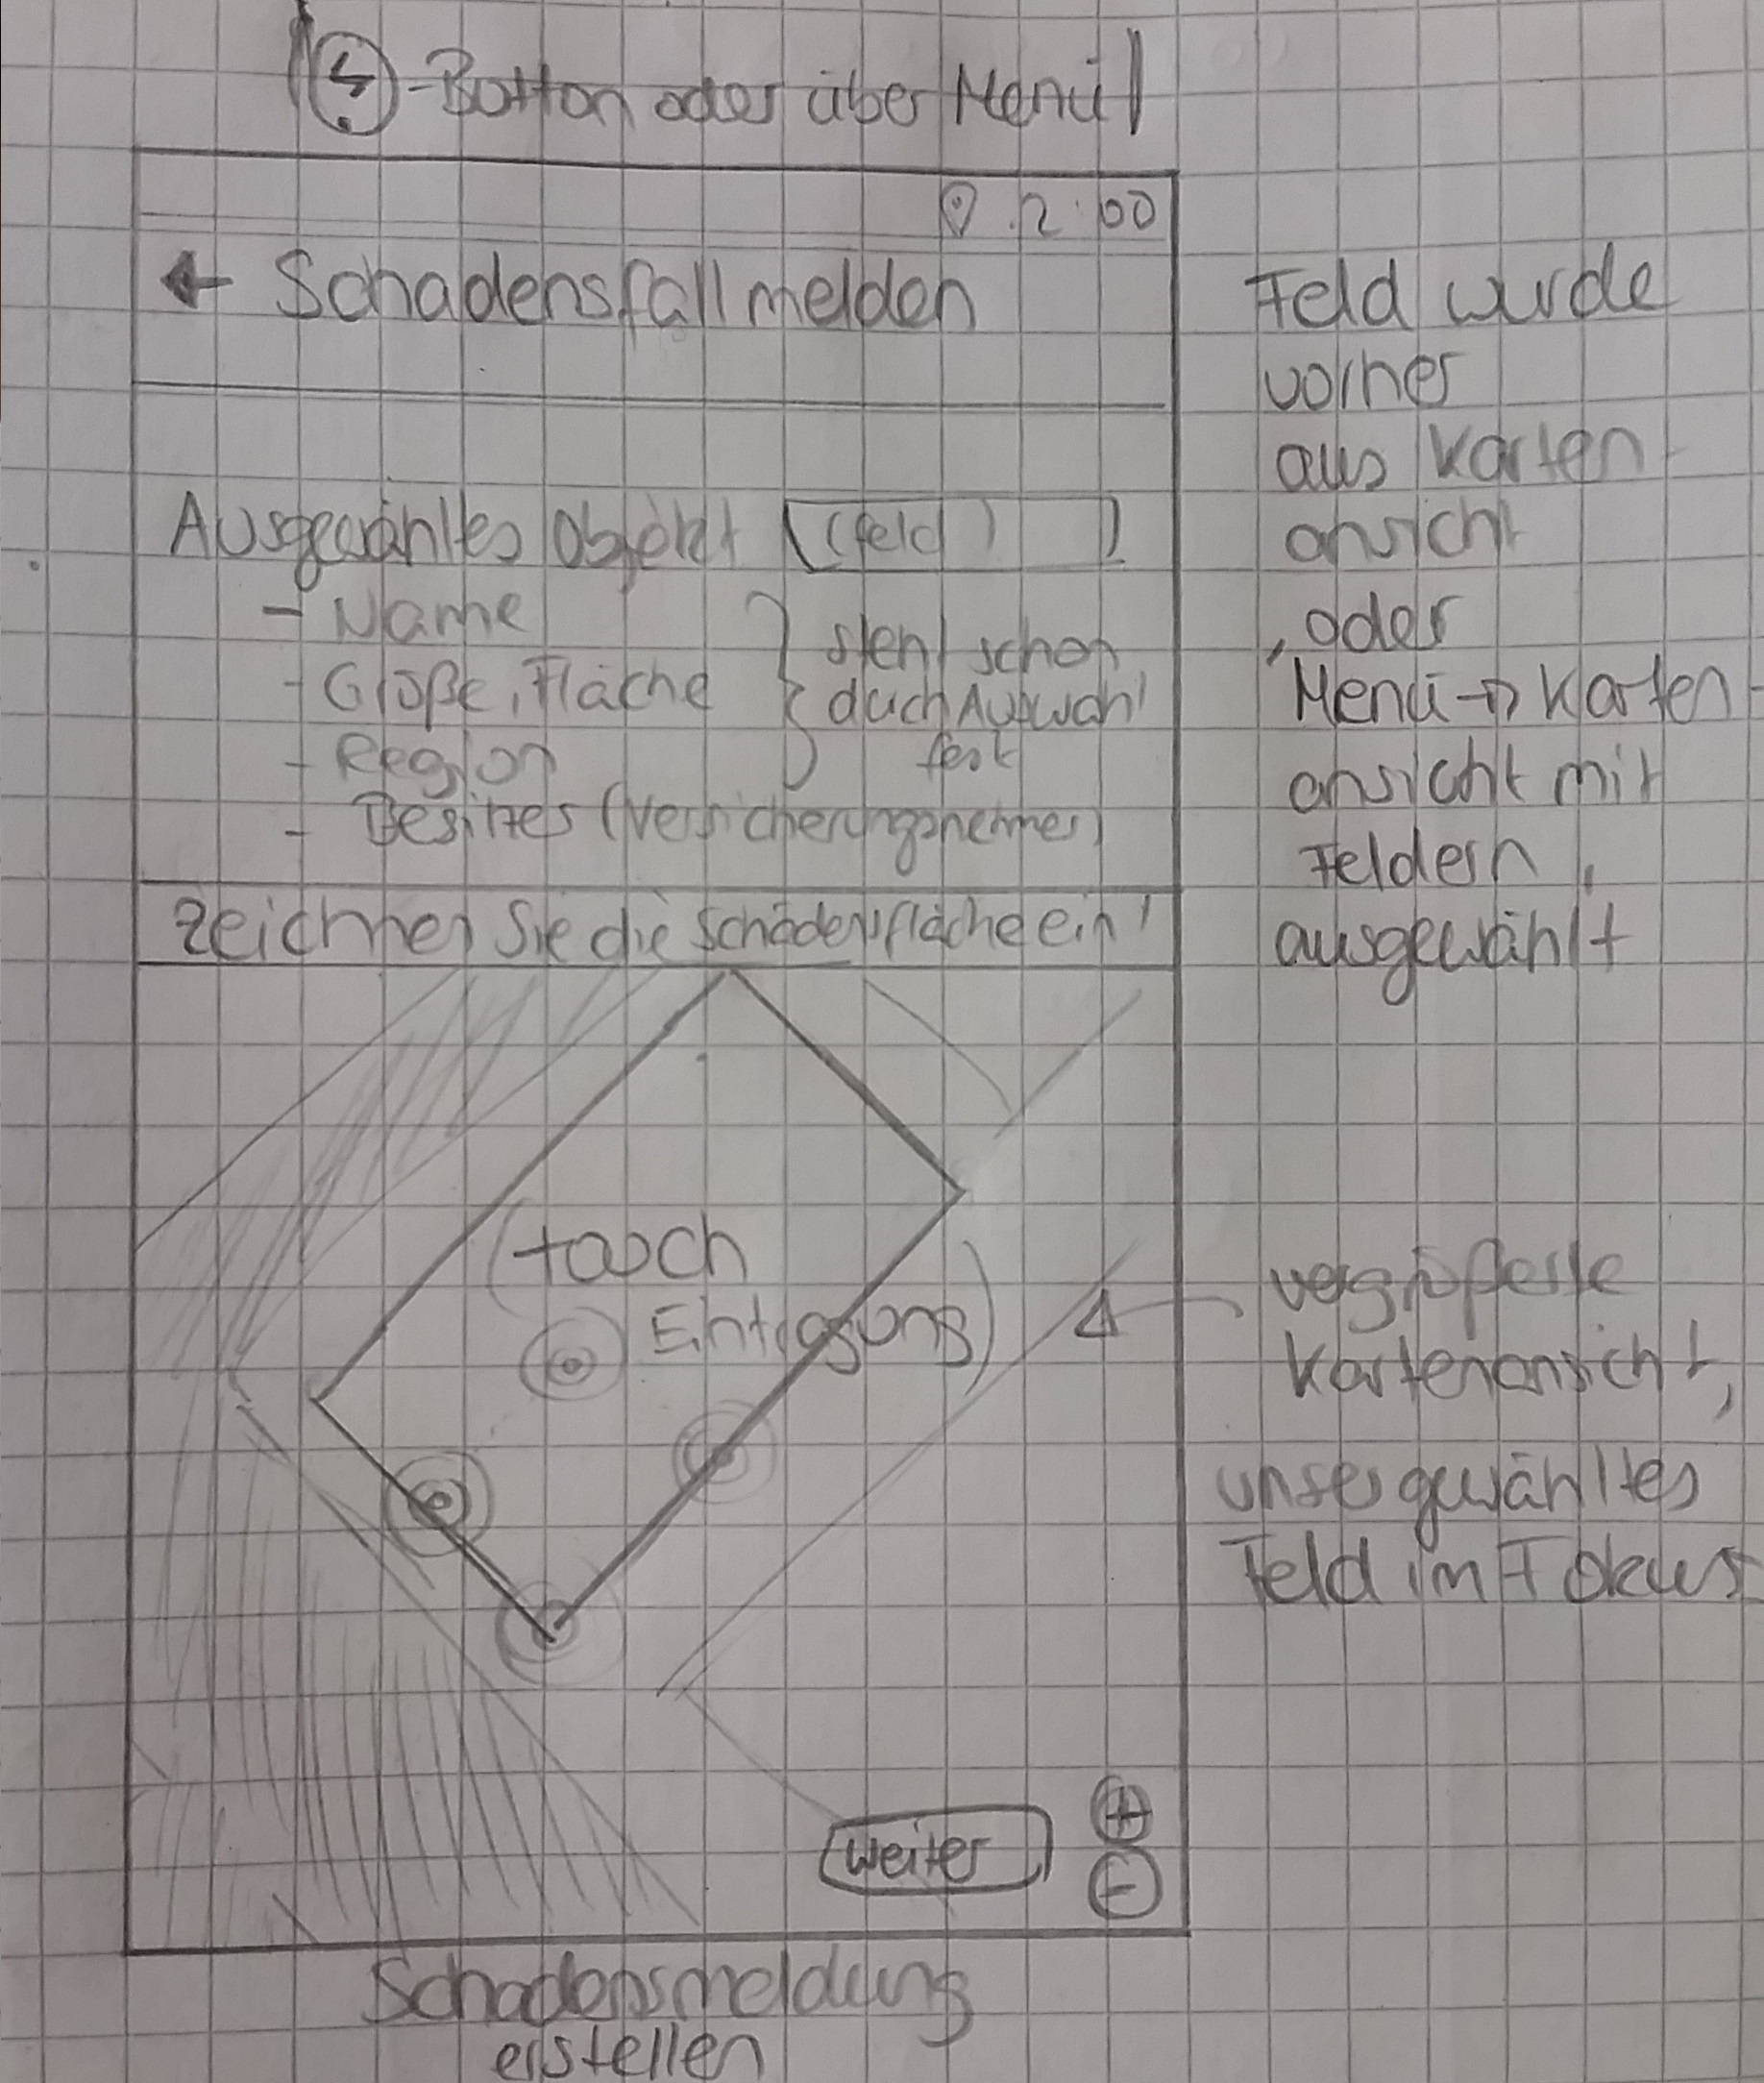 -Botton oder über Menü
2:00
← Schadensfall melden
Ausgewähltes Objekt (feld)
- Name
- Größe, Fläche
- Region
- Besitzer (Versicherungsnehmer)
steht schon
durch Auswahl
fest
Zeichnen Sie die Schadensfläche ein!
(touch
Eintragung)
weiter
+
-
Schadensmeldung
erstellen
Feld wurde
vorher
aus Karten-
ansicht
, oder
Menü → Karten-
ansicht mit
Feldern,
ausgewählt
vergrößerte
Kartenansicht,
unser gewähltes
Feld im Fokus